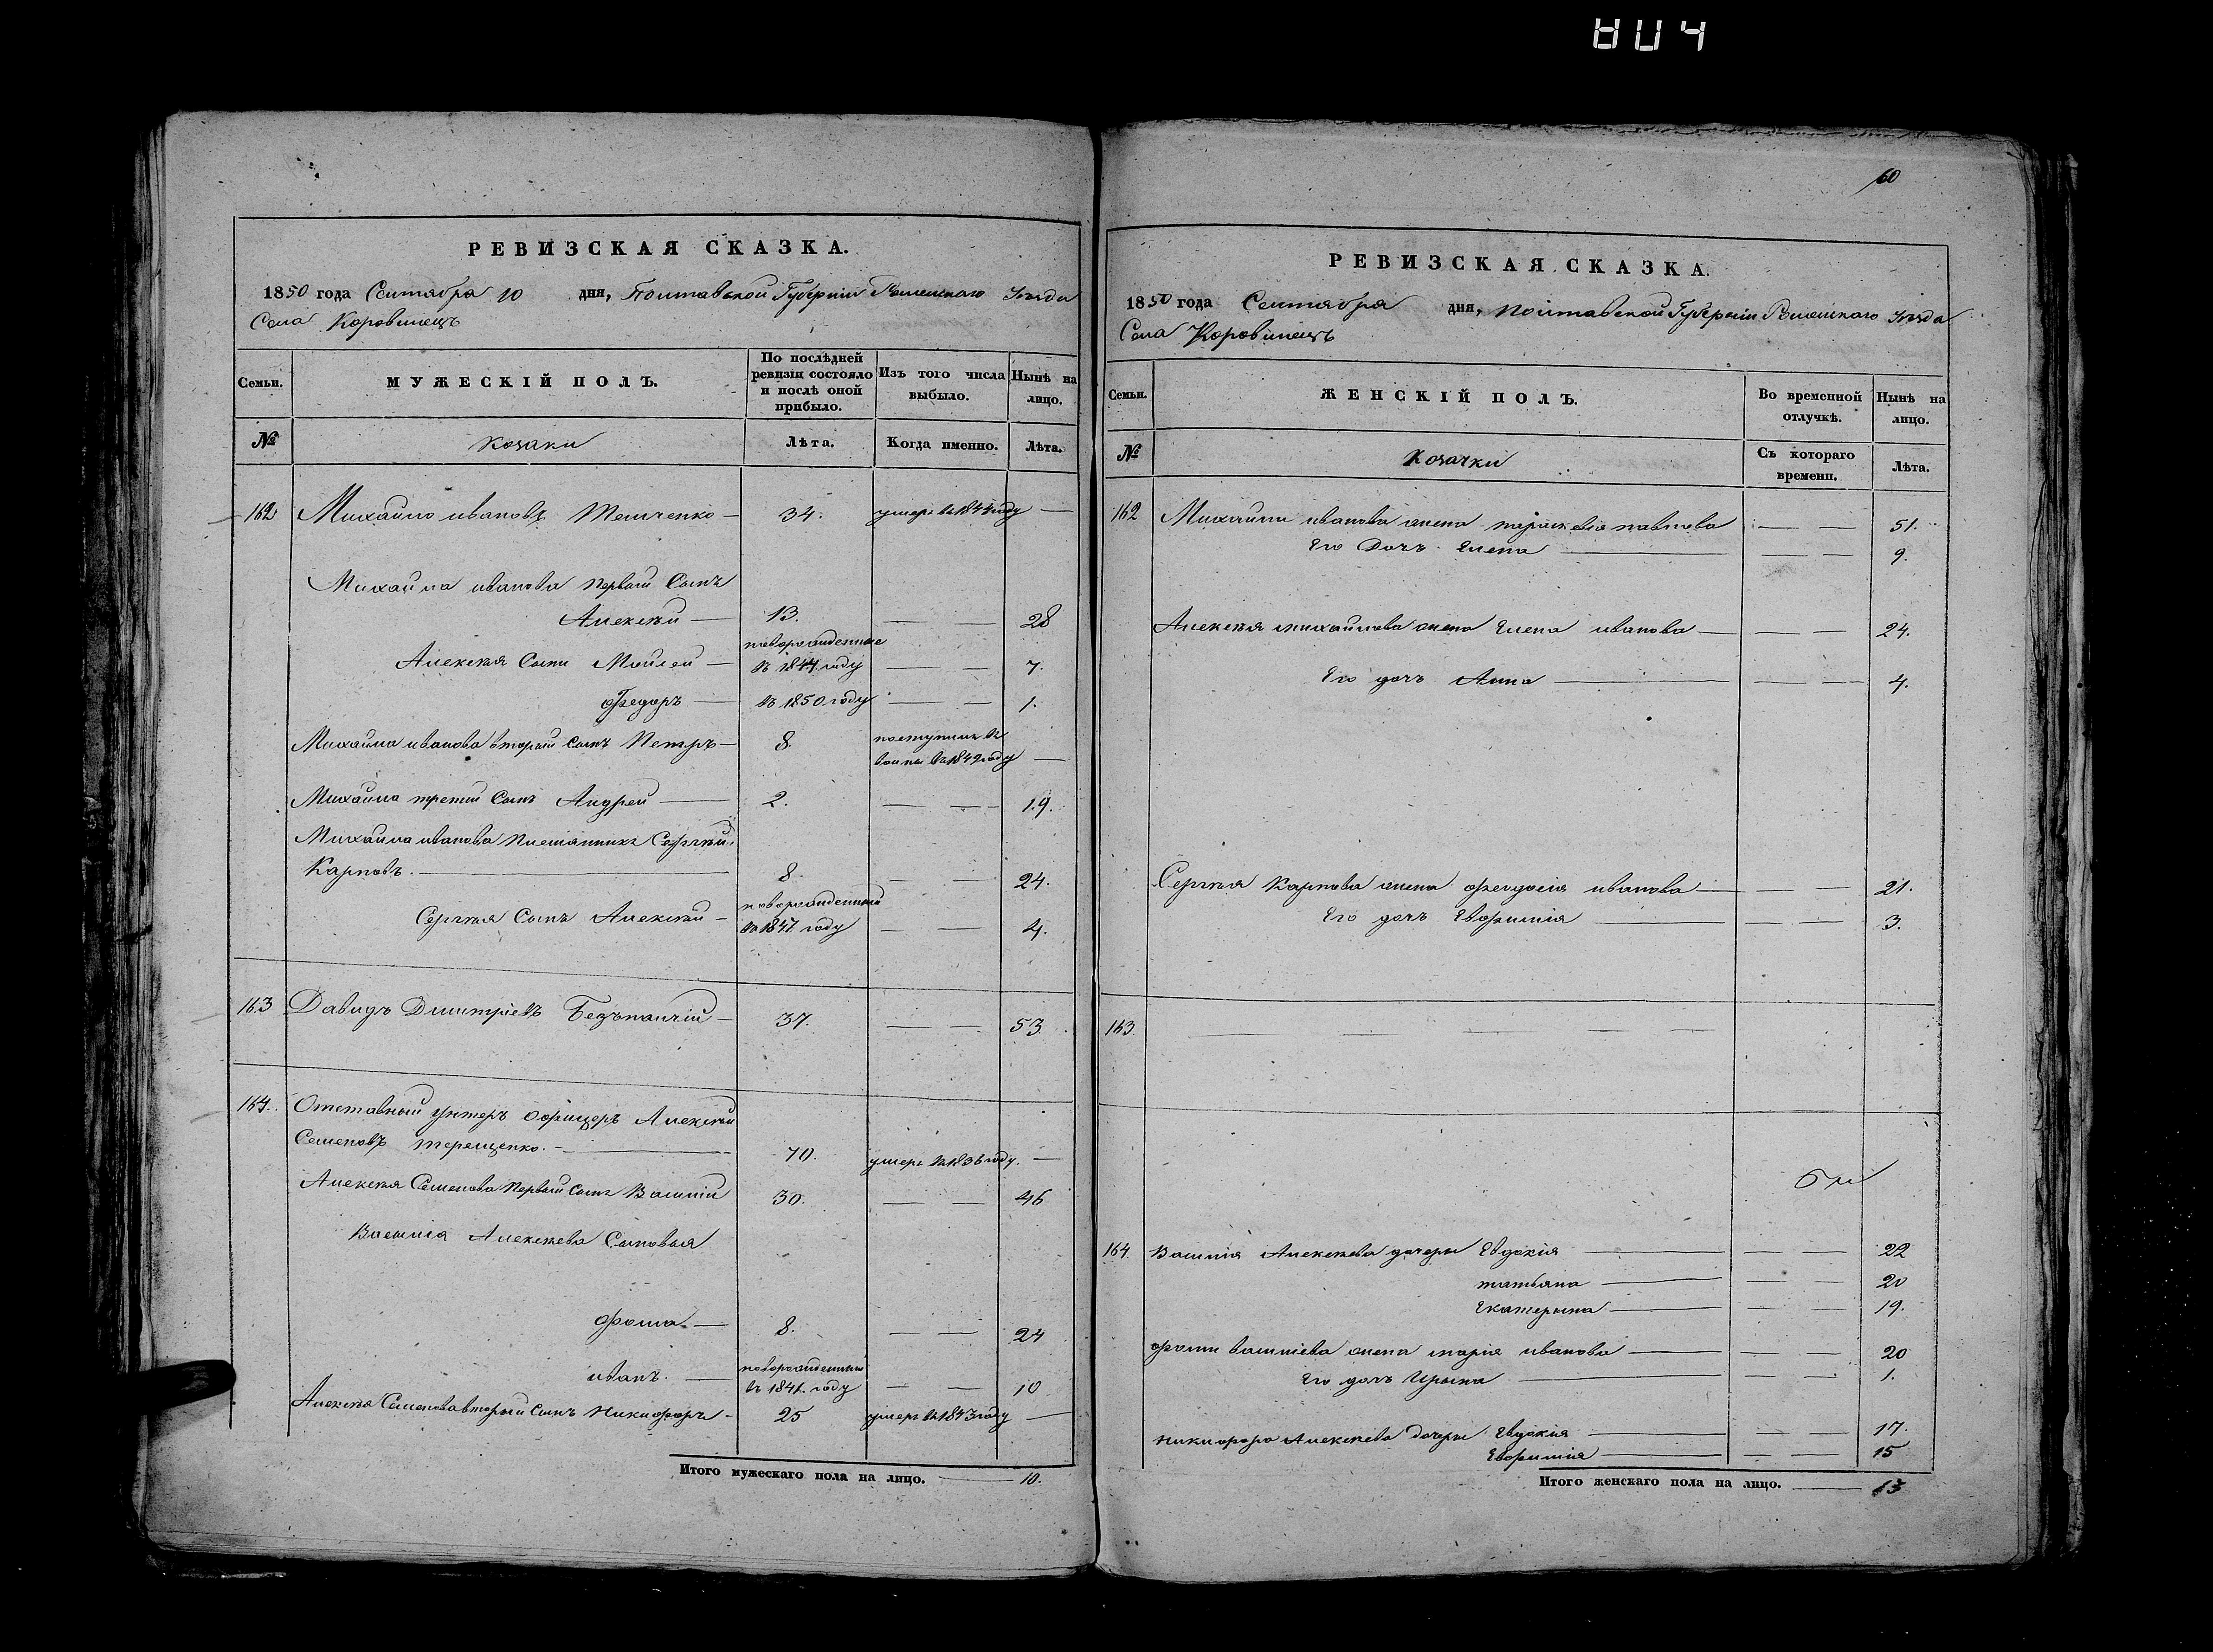 60
РЕВИЗСКАЯ СКАЗКА.
1850 года Сентября 10 дня, Полтавской Губерніи Роменскаго Уезда
Села Коровинецъ
Семьи.
МУЖЕСКІЙ ПОЛЪ.
По послѣдней ревизіи состояло и послѣ оной прибыло.
Изъ того числа выбыло.
Нынѣ на лицо.
№
Козаки
Лѣта.
Когда именно.
Лѣта.
162 Михайло ивановъ 34. умеръ въ 1844 году —
Михайла иванова первый Сынъ
Алексѣй — 13. — — 28
новорожденные
Алексѣя Сыны Моисей — въ 1844 году — — 7.
Федоръ — въ 1850 году — — 1.
Михайла иванова вторый сынъ Петръ — 8. поступилъ въ
въ 1849 году —
Михайла третий Сынъ Андрей — 2. — — 19.
Михайла иванова племянникъ Сергѣй
Карповъ. — 8. — — 24.
новорожденный
Сергѣя Сынъ Алексѣй — въ 1847 году — — 4.
163 Давидъ Дмитріевъ — 37. — — 53.
164. Отставный унтеръ офицеръ Алексѣй
Семеновъ терещенко. — 70. умеръ въ 1836 году. —
Алексѣя Семенова первый сынъ Василій 30. — — 46
Василія Алексѣева Сыновья
Фома — 8. — — 24
новорожденный
иванъ. — въ 1841. году — — 10
Алексѣя Семенова вторый Сынъ Никифоръ — 25 умеръ въ 1843 году —
Итого мужескаго пола на лицо. — 10.
РЕВИЗСКАЯ СКАЗКА.
1850 года Сентября дня, Полтавской Губерніи Роменскаго Уезда
Села Коровинецъ
Семьи.
ЖЕНСКІЙ ПОЛЪ.
Во временной отлучкѣ.
Нынѣ на лицо.
№
Козачки
Съ котораго времени.
Лѣта.
162 Михайлы иванова жена параскевія павлова — — 51.
Его Дочь Елена — — — 9.
Алексѣя михайлова жена Елена иванова — — — 24.
Его дочь Анна — — — 4.
Сергѣя Карпова жена феодосія иванова — — — 21.
Его дочь Евфимія — — — 3.
163 — — — —
164. Василія Алексѣева дочери Евдокія — — — 22
татьяна — — — 20
Екатерына — — — 19.
фомы василіева жена марія иванова — — — 20
Его дочь Ирына — — — 1.
никифора Алексѣева дочери Евдокія — — — 17.
Евфимія — — — 15
Итого женскаго пола на лицо. — 13